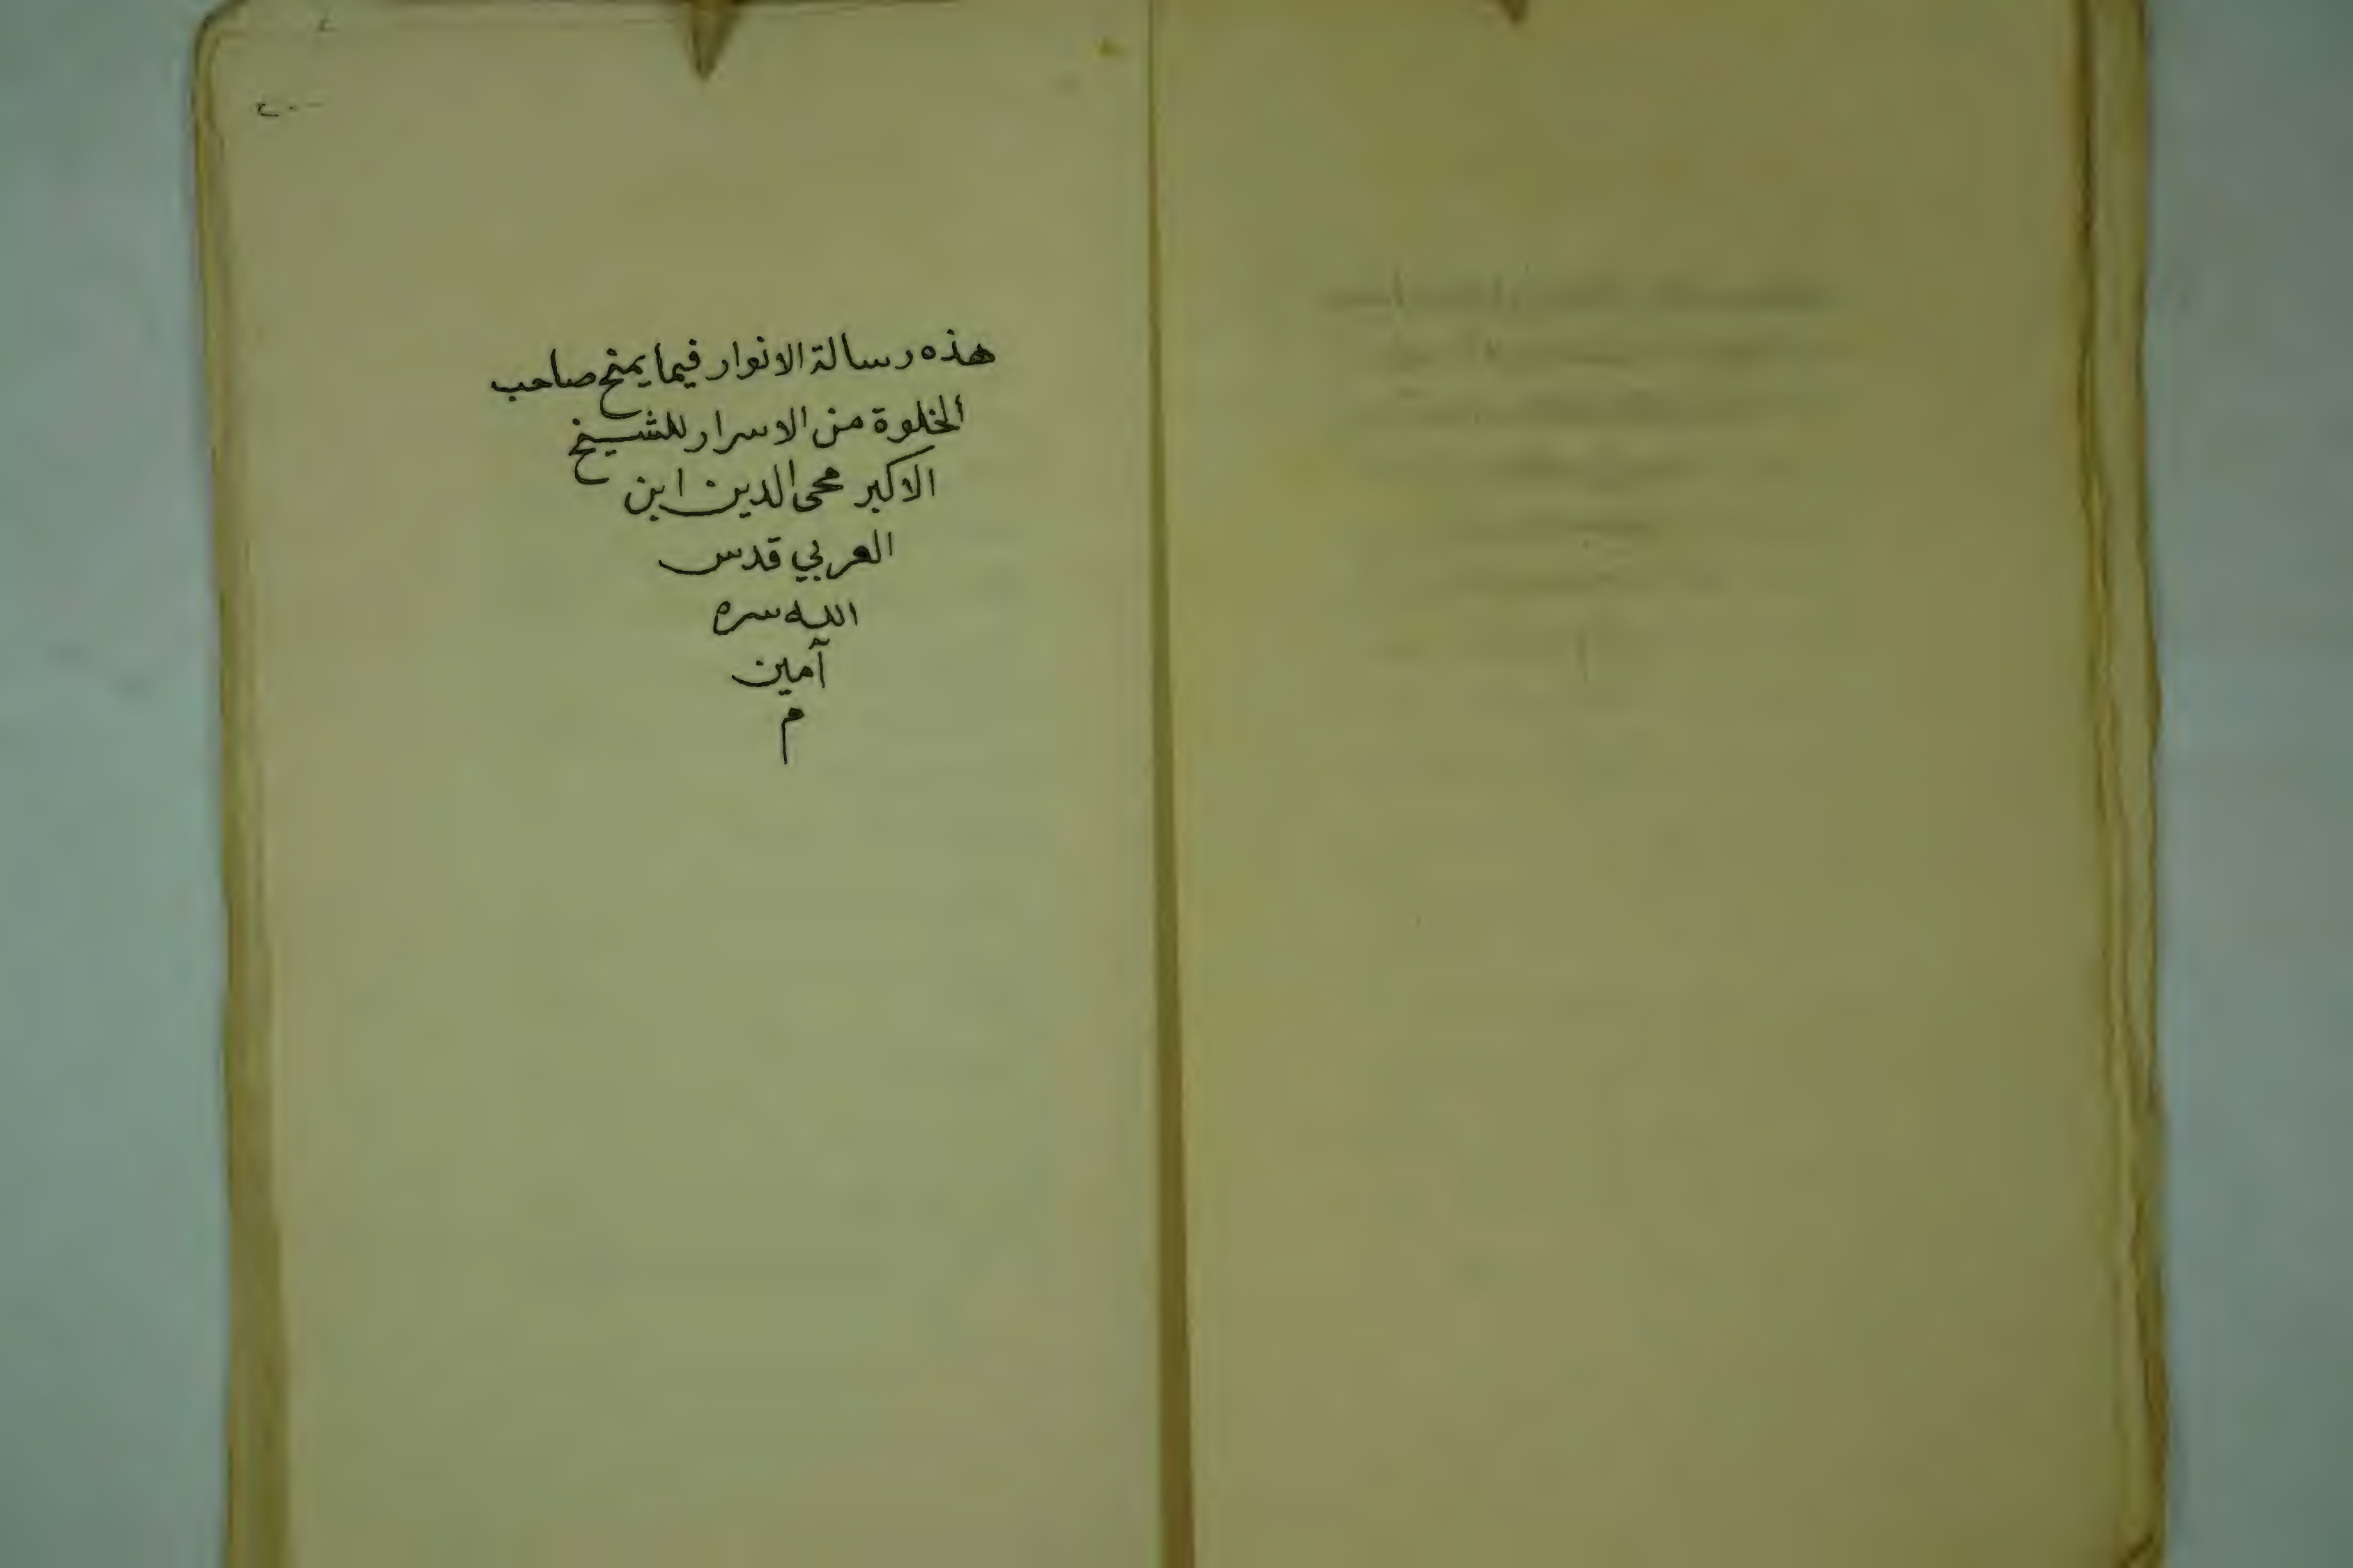 هذه رسالة الانوار فيما يمنح صاحب
الخلوة من الاسرار للشيخ
الاكبر محى الدين ابن
العربي قدس
الله سره
آمين
م